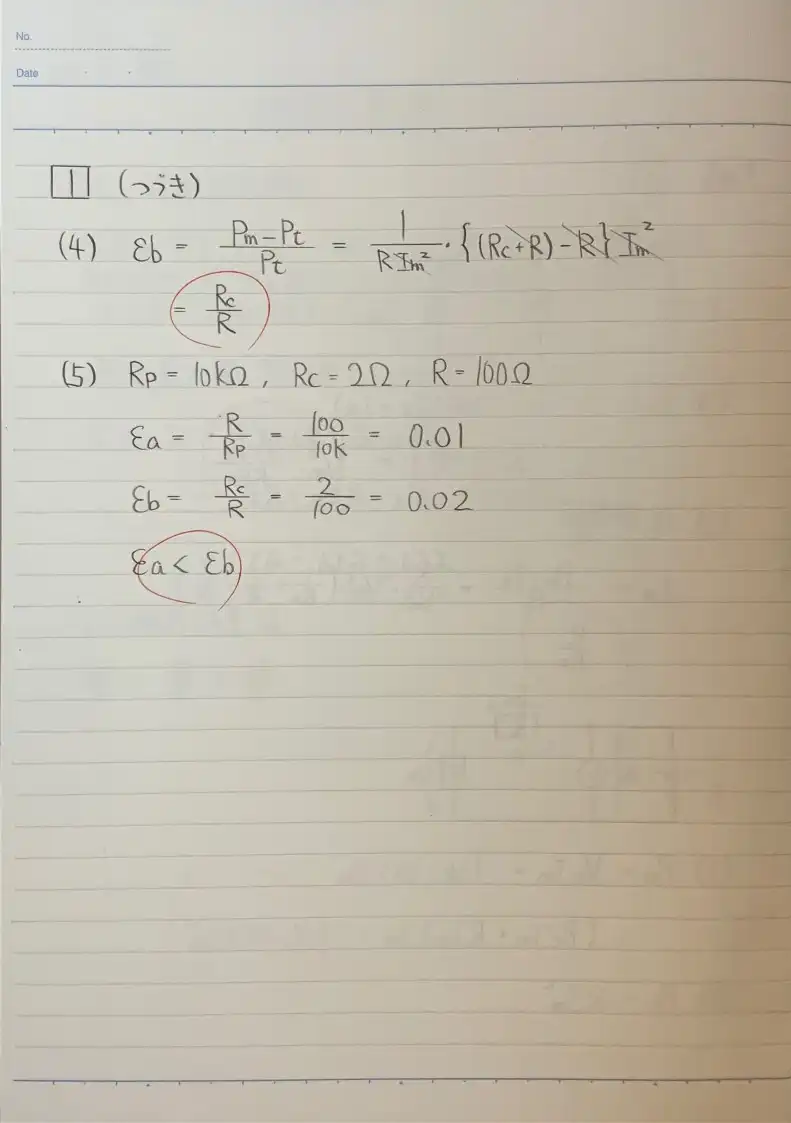 No.
Date
1 (つづき)
(4) εb = (Pm−Pt)/Pt = 1/(RIm²)・{(Rc+R)−R}Im²
= Rc/R
(5) Rp = 10kΩ, Rc = 2Ω, R = 100Ω
εa = R/Rp = 100/10k = 0.01
εb = Rc/R = 2/100 = 0.02
εa < εb